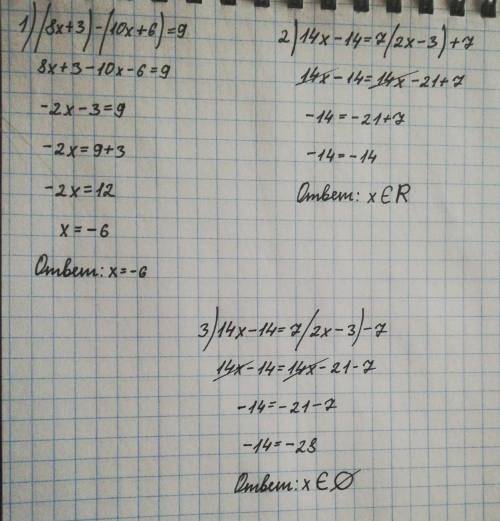 1) (8x+3)-(10x+6)=9
8x+3-10x-6=9
-2x-3=9
-2x=9+3
-2x=12
x=-6
Ответ: x=-6
2) 14x-14=7(2x-3)+7
14x-14=14x-21+7
-14=-21+7
-14=-14
Ответ: x∈R
3) 14x-14=7(2x-3)-7
14x-14=14x-21-7
-14=-21-7
-14=-28
Ответ: x∈∅